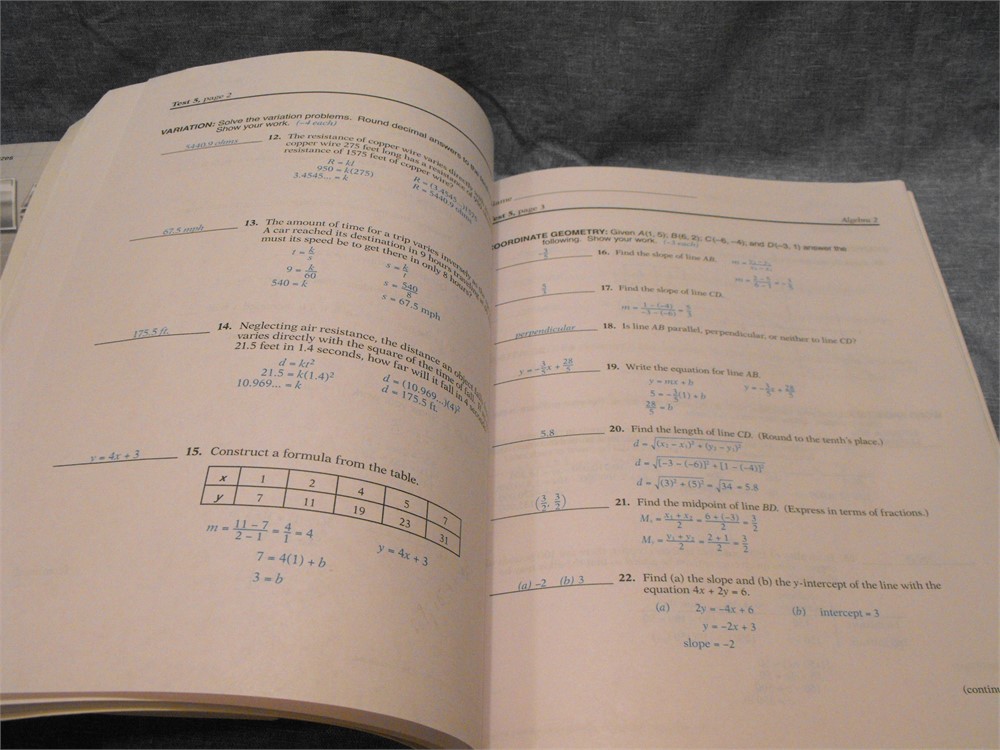 Test 5, page 2
VARIATION: Solve the variation problems. Round decimal answers to the
Show your work. (–4 each)
5440.9 ohms
12. The resistance of copper wire varies directly
copper wire 275 feet long has a resistance of
resistance of 1575 feet of copper wire?
R = kl
950 = k(275)
3.4545... = k
R = (3.4545
R = 5440.9 ohms
67.5 mph
13. The amount of time for a trip varies inversely
A car reached its destination in 9 hours
must its speed be to get there in only 8 hours?
t = k/s
9 = k/60
540 = k
s = k/t
s = 540/8
s = 67.5 mph
175.5 ft.
14. Neglecting air resistance, the distance an object
varies directly with the square of the time of fall.
21.5 feet in 1.4 seconds, how far will it fall in 4
d = kt²
21.5 = k(1.4)²
10.969... = k
d = (10.969...)(4)²
d = 175.5 ft.
y = 4x + 3
15. Construct a formula from the table.
x 1 2 4 5 7
y 7 11 19 23 31
m = 11 – 7/2 – 1 = 4/1 = 4
7 = 4(1) + b
3 = b
y = 4x + 3
Test 5, page 3
Algebra 2
COORDINATE GEOMETRY: Given A(1, 5); B(6, 2); C(–6, –4); and D(–3, 1) answer the
following. Show your work. (–3 each)
–3/5
16. Find the slope of line AB.
5/3
17. Find the slope of line CD.
m = 1 – (–4)/–3 – (–6) = 5/3
perpendicular
18. Is line AB parallel, perpendicular, or neither to line CD?
y = –3/5x + 28/5
19. Write the equation for line AB.
y = mx + b
5 = –3/5(1) + b
28/5 = b
y = –3/5x + 28/5
5.8
20. Find the length of line CD. (Round to the tenth's place.)
d = √(x₂ – x₁)² + (y₂ – y₁)²
d = √[–3 – (–6)]² + [1 – (–4)]²
d = √(3)² + (5)² = √34 = 5.8
(3/2, 3/2)
21. Find the midpoint of line BD. (Express in terms of fractions.)
x₁ + x₂/2 = 6 + (–3)/2 = 3/2
y₁ + y₂/2 = 2 + 1/2 = 3/2
(a) –2 (b) 3
22. Find (a) the slope and (b) the y-intercept of the line with the
equation 4x + 2y = 6.
(a) 2y = –4x + 6
(b) intercept = 3
y = –2x + 3
slope = –2